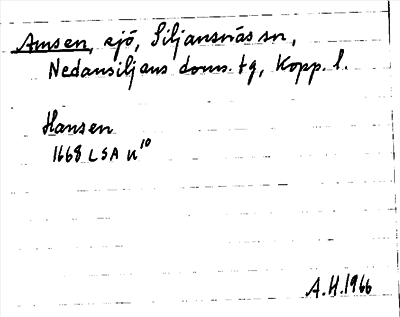 Amsen, sjö, Siljansnäs sn,
Nedansiljans doms. tg, Kopp. l.
Hansen
1668 LSA U10
A.H.1966